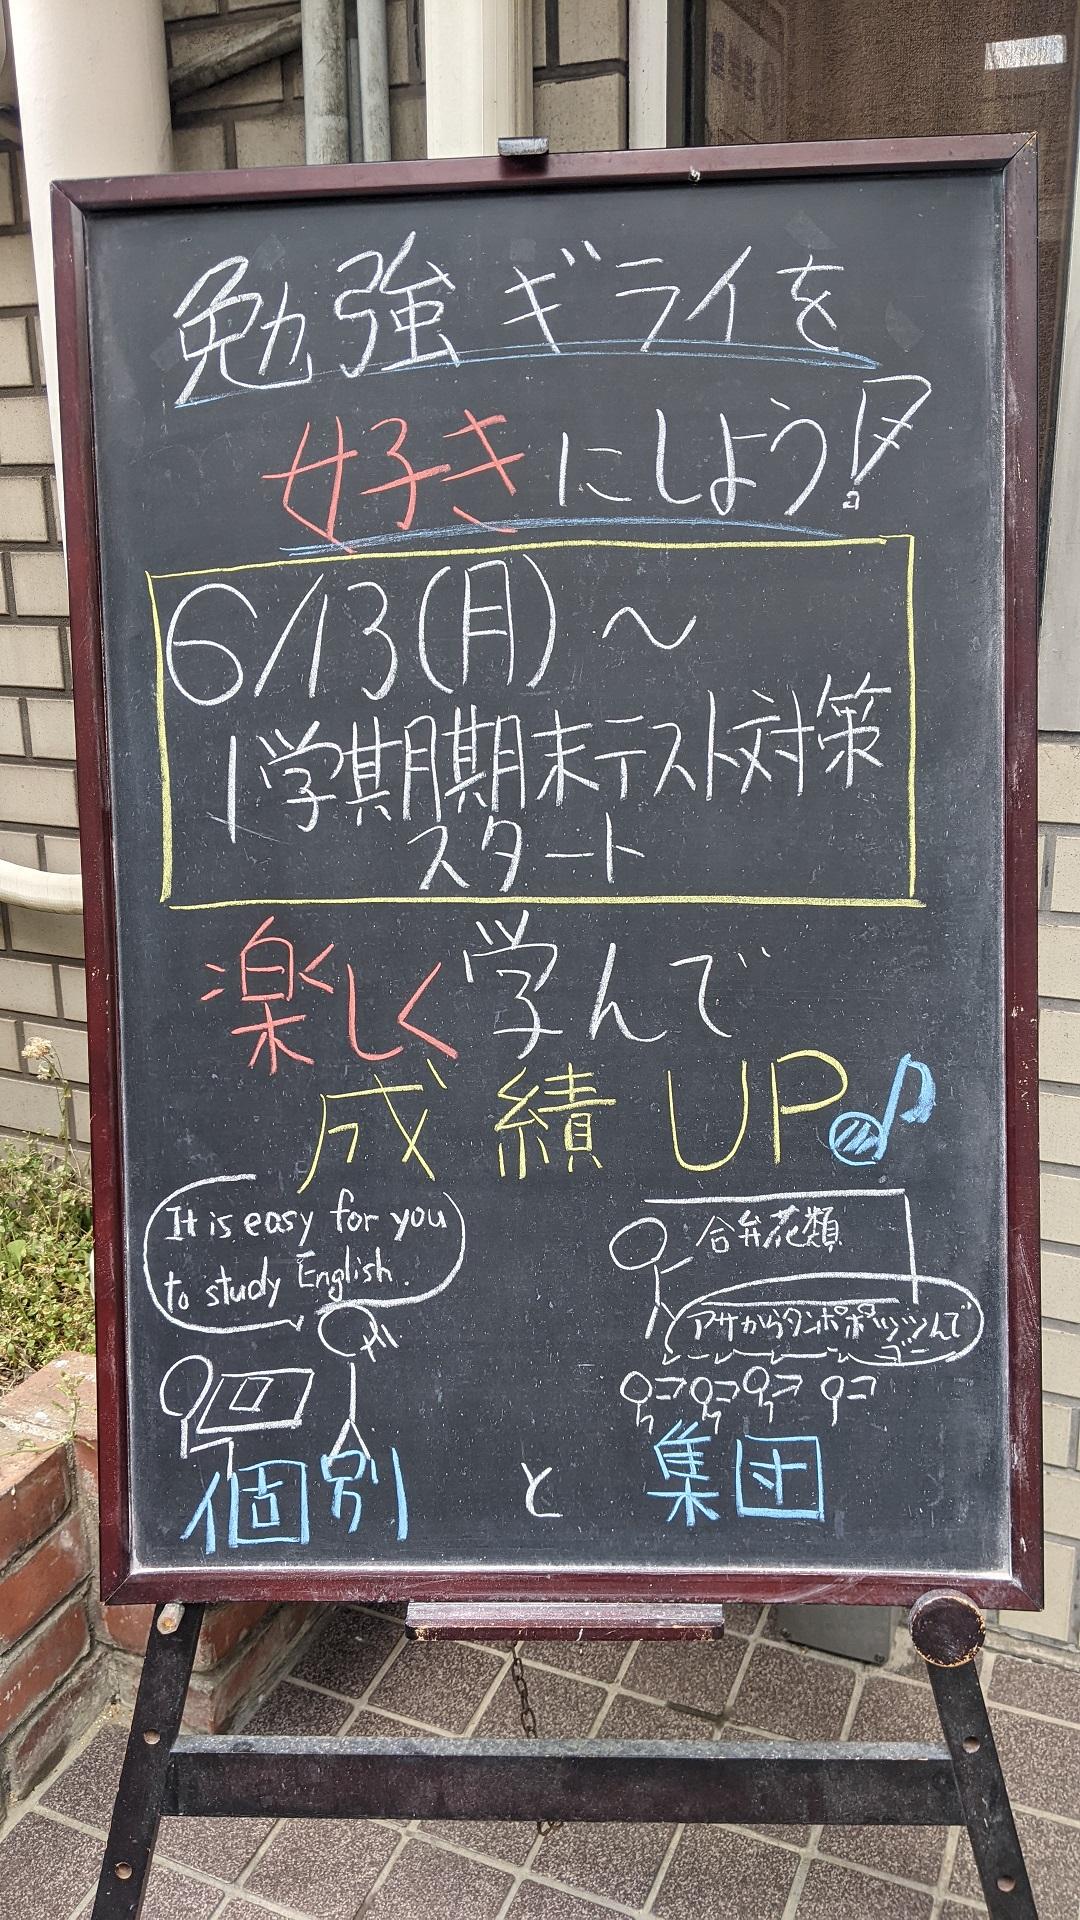 勉強ギライを
好きにしよう!
6/13(月)～
1学期期末テスト対策
スタート
楽しく学んで
成績UP♪
It is easy for you
to study English.
合弁花類
アサからタンポポツツんで
ゴー
個別と集団